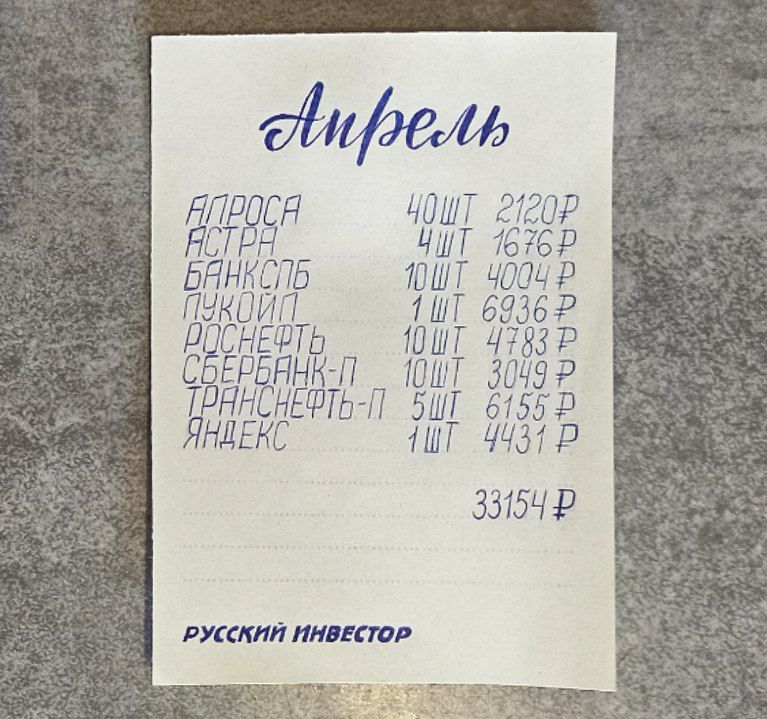 Апрель
АЛРОСА 40 ШТ 2120₽
АСТРА 4 ШТ 1676₽
БАНКСПБ 10 ШТ 4004₽
ЛУКОЙЛ 1 ШТ 6936₽
РОСНЕФТЬ 10 ШТ 4783₽
СБЕРБАНК-П 10 ШТ 3049₽
ТРАНСНЕФТЬ-П 5 ШТ 6155₽
ЯНДЕКС 1 ШТ 4431₽
33154₽
РУССКИЙ ИНВЕСТОР